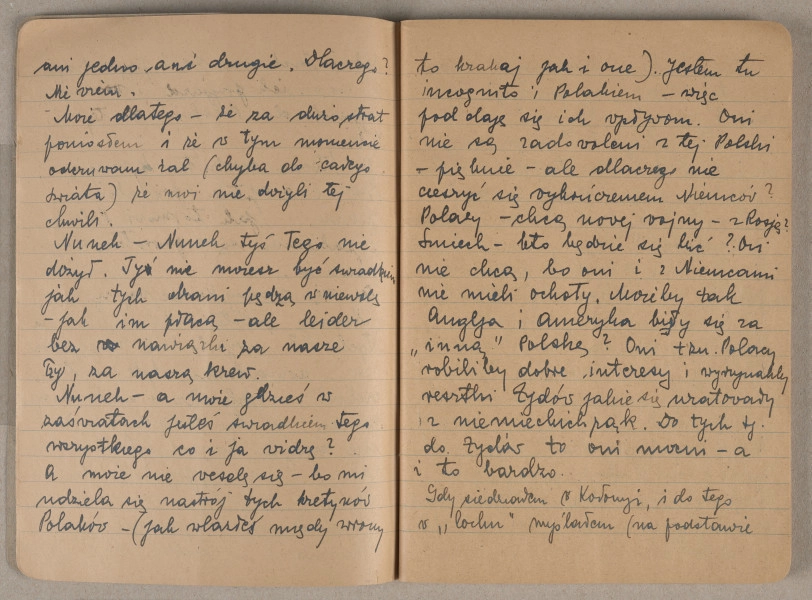 ani jedno ani drugie. Dlaczego?
Nie wiem.
Może dlatego – że za dużo strat
poniosłem i że w tym momencie
odczuwam żal (chyba do całego
świata) że moi nie dożyli tej
chwili.
Nunek – Nunek tyś Tego nie
dożył. Tyś nie możesz być świadkiem
jak tych drani pędzą w niewolę
– jak im płacą – ale leider
bez nawiązki za nasze
łzy, za naszą krew.
Nunek – a może gdzieś w
zaświatach jesteś świadkiem tego
wszystkiego co i ja widzę?
A może nie weselę się – bo mi
udziela się nastrój tych kretynów
Polaków – (jak wlazłeś między wrony
to krakaj jak i one). Jestem tu
incognito i Polakiem – więc
poddaję się ich wpływom. Oni
nie są zadowoleni z tej Polski
– pięknie – ale dlaczego nie
cieszyć się wykończeniem Niemców?
Polacy – chcą nowej wojny – z Rosją?
Śmiech – kto będzie się bić? Oni
nie chcą, bo oni i z Niemcami
nie mieli ochoty. Możeby tak
Anglja i Ameryka biły się za
„inną" Polskę? Oni tzn. Polacy
robiliby dobre interesy i wyrzynaliby
resztki Żydów jakie się uratowały
z niemieckich rąk. Do tych tj.
do Żydów to oni mocni – a
i to bardzo.
Gdy siedziałem w Kołomyi, i do tego
w „lochu" myślałem (na podstawie